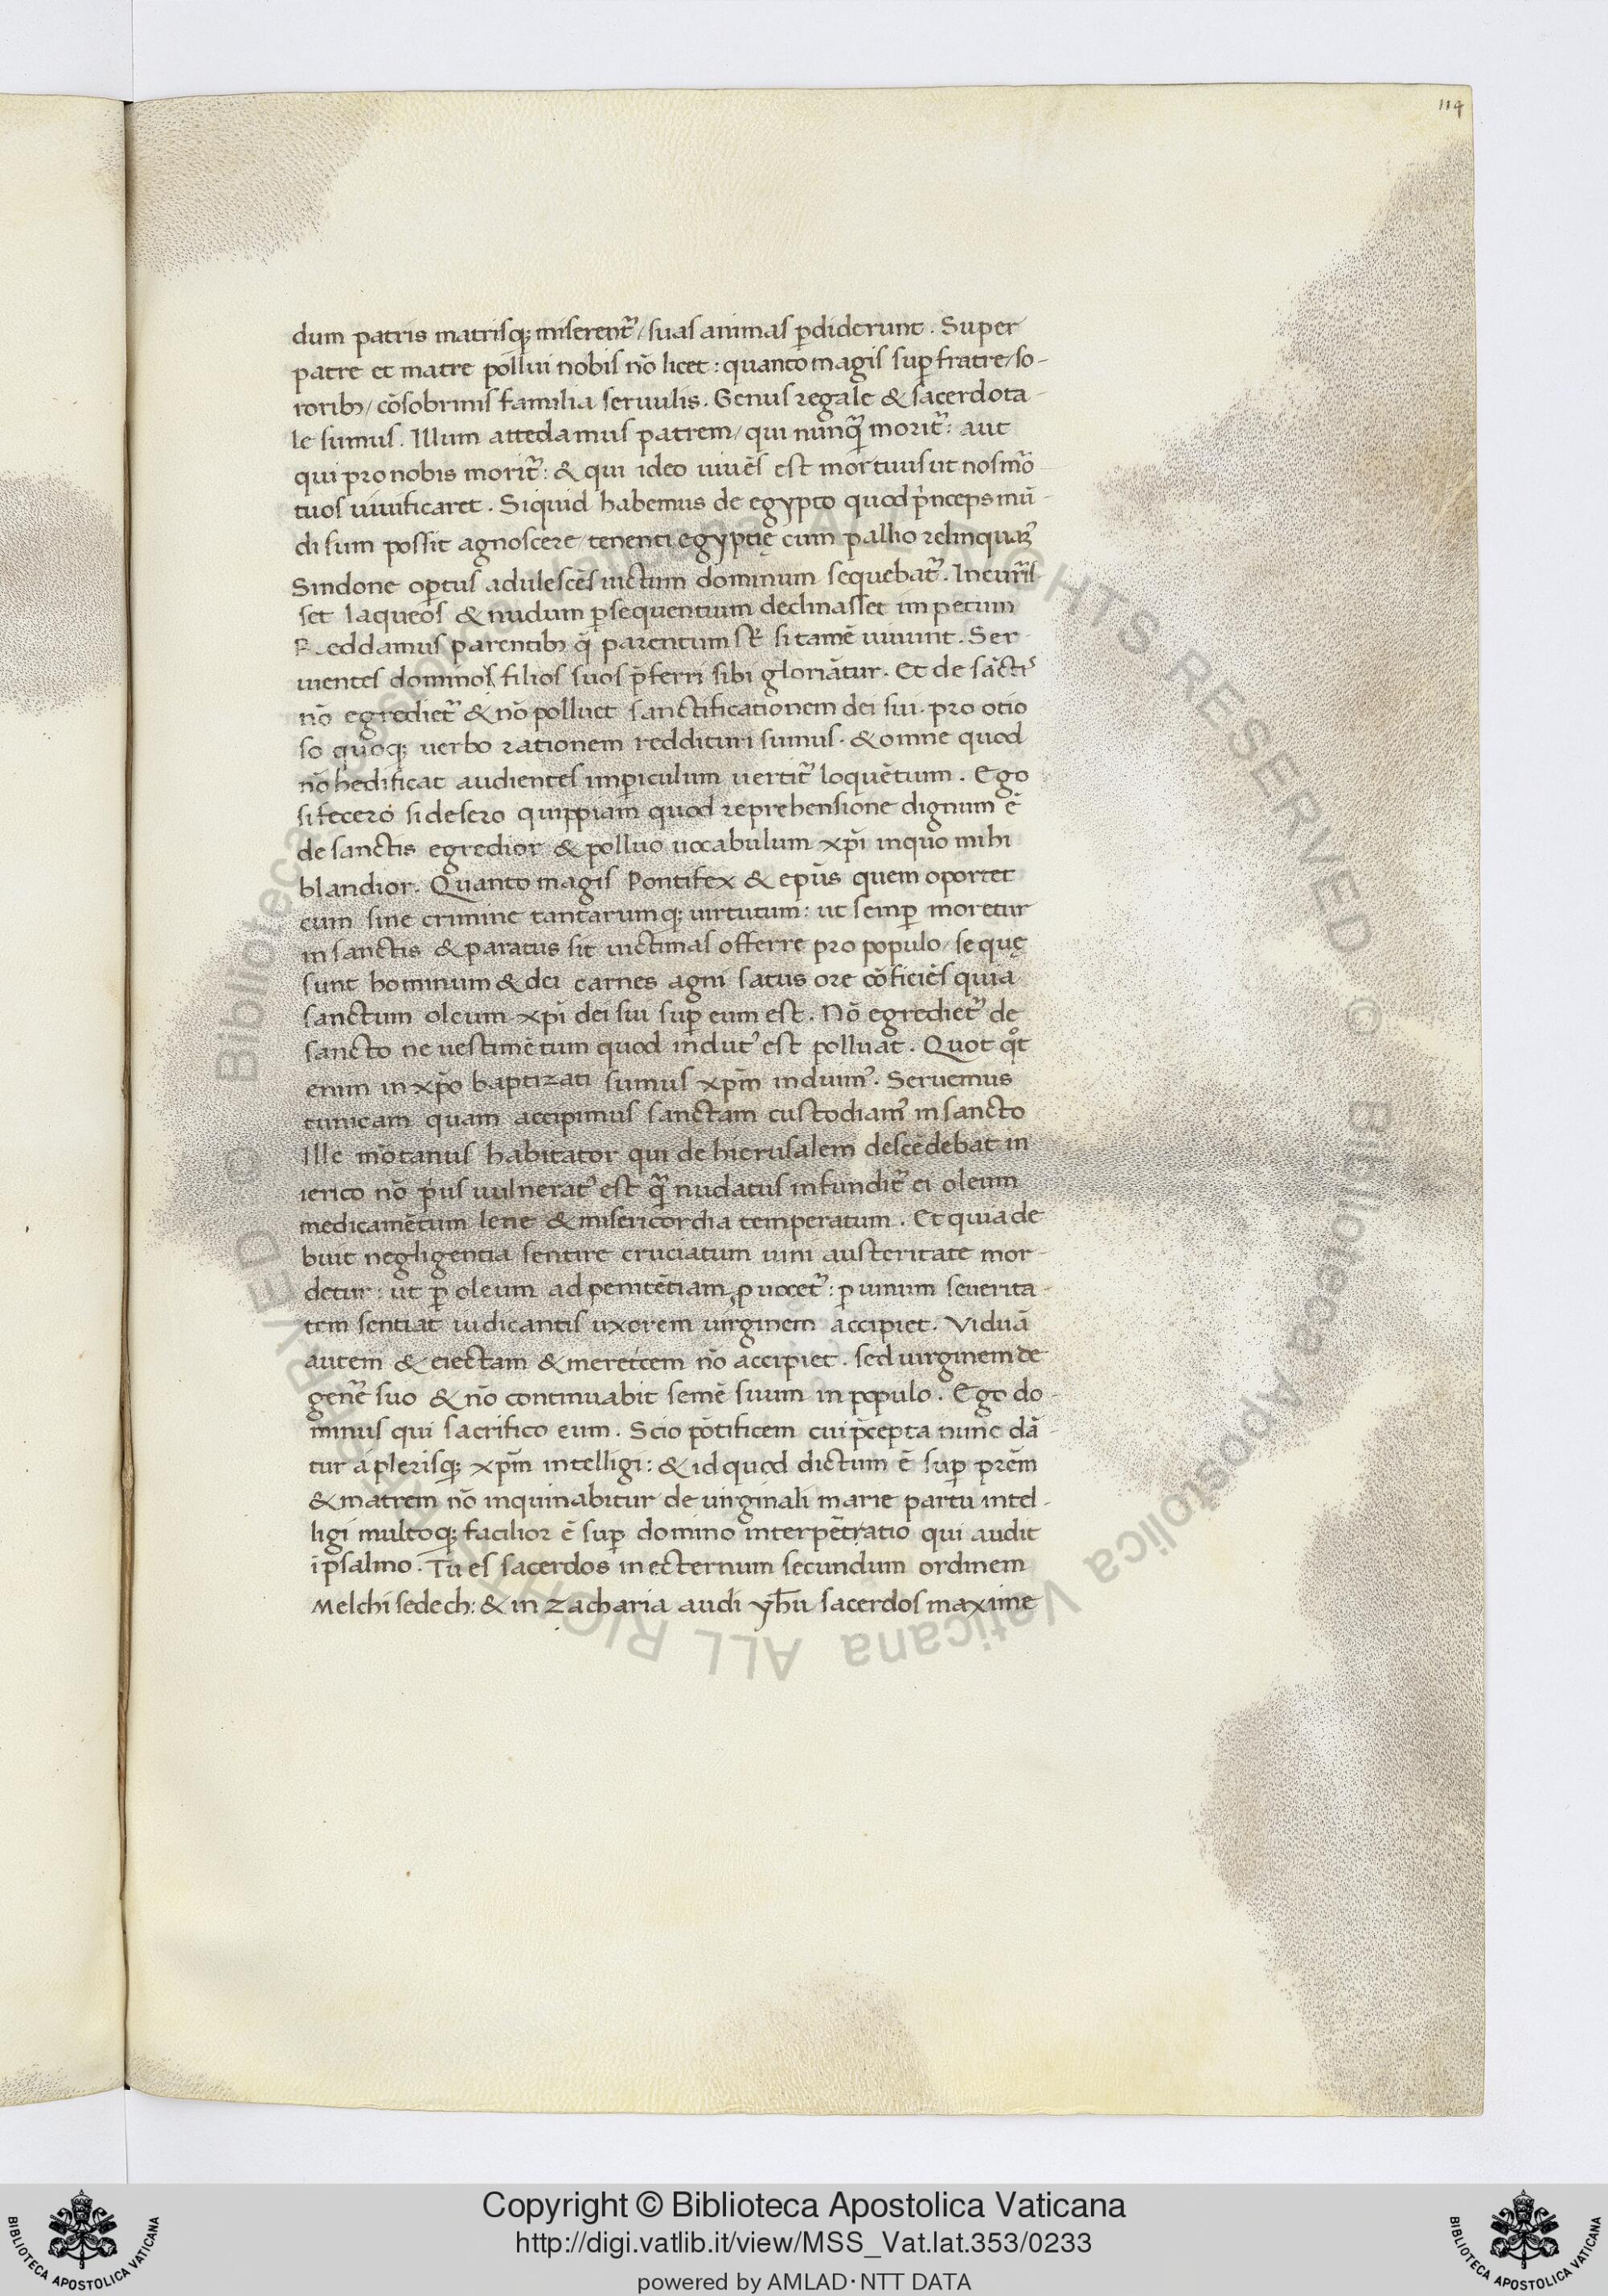 114
dum patris matrisq; miserent᷑/ suas animas ꝑdiderunt. Super
patre et matre pollui nobis nō licet: quanto magis suꝑ fratre/ so-
roribꝫ/ cōsobrinis familia seruulis. Genus regale & sacerdota-
le sumus. Illum attedamus patrem/ qui nunq̄ morit᷑: aut
qui pro nobis morit᷑: & qui ideo uiuēs est mortuus ut nos mō
tuos uiuificaret. Siquid habemus de egypto quod pͥnceps mū-
di sum possit agnoscere/ tenenti egyptię cum pallio relinquaꝫ
Sindone oꝑtus adulescēs uictum dominum sequebat᷑. Incurris
set laqueos & nudum ꝑsequentium declinasset impetum
Reddamus parentibꝫ q̄ parentum sͭ si tamē uiuunt. Ser-
uientes dominos filios suos p̄ferri sibi gloriātur. Et de sāctis
nō egrediet᷑ & nō polluet sanctificationem dei sui. pro otio
so quoq; uerbo rationem reddituri sumus. & omne quod
nō hedificat audientes in ꝑiculum uertit᷑ loquētum. Ego
si fecero si desero quippiam quod reprehensione dignum ē
de sanctis egredior & polluo uocabulum xp̄i in quo mihi
blandior. Quanto magis Pontifex & ep̄us quem oportet
eum sine crimine tantarumq; uirtutum: ut semꝑ moretur
in sanctis & paratus sit uictimas offerre pro populo/ sequę
sunt hominum & dei carnes agni satus ore cōficiēs quia
sanctum oleum xp̄i dei sui suꝑ eum est. Nō egrediet᷑ de
sancto ne uestimētum quod indut᷒ est polluat. Quot qͦt
enim in xp̄o baptizati sumus xp̄m induim᷒. Seruemus
tunicam quam accipimus sanctam custodiam᷒ in sancto
Ille mōtanus habitator qui de hierusalem descēdebat in
ierico nō pͥus uulnerat᷒ est q̄ nudatus infundit᷑ ei oleum
medicamētum lene & misericordia temperatum. Et quia de
buit negligentia sentire cruciatum uini austeritate mor-
detur: ut ꝑ oleum ad penitētiam ꝓuocet᷑: ꝑ uinum seuerita-
tem sentiat iudicantis uxorem uirginem accipiet. Viduā
autem & eiectam & meretcem nō accipiet. sed uirginem de
gen̄e suo & nō continuabit semē suum in populo. Ego do-
minus qui sacrifico eum. Scio pōtificem cui p̄cepta nunc dā-
tur a plerisq; xp̄m intelligi: & id quod dictum ē suꝑ pr̄em
& matrem nō inquinabitur de uirginali marie partu intel-
ligi multoq; facilior ē suꝑ domino interpētratio qui audit
ī psalmo. Tu es sacerdos in ecternum secundum ordinem
Melchisedech: & in zacharia audi yh̄u sacerdos maxime
Biblioteca Apostolica Vaticana ALL RIGHTS RESERVED © Biblioteca Apostolica Vaticana ALL RIGHTS RESERVED ©
Copyright © Biblioteca Apostolica Vaticana
http://digi.vatlib.it/view/MSS_Vat.lat.353/0233
powered by AMLAD·NTT DATA
BIBLIOTECA APOSTOLICA VATICANA
BIBLIOTECA APOSTOLICA VATICANA